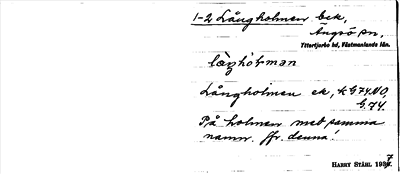 1-2 Långholmen bek,
Ängsö sn,
Yttertjurbo hd, Västmanlands län.
Långholmen ek, k G74NO,
G.74.
På holmen med samma
namn. Jfr denna!
HARRY STÅHL 1937.